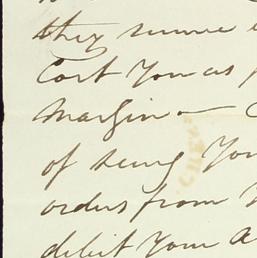 they
Cost You as
Margin —
of being You
orders from
debit Your a